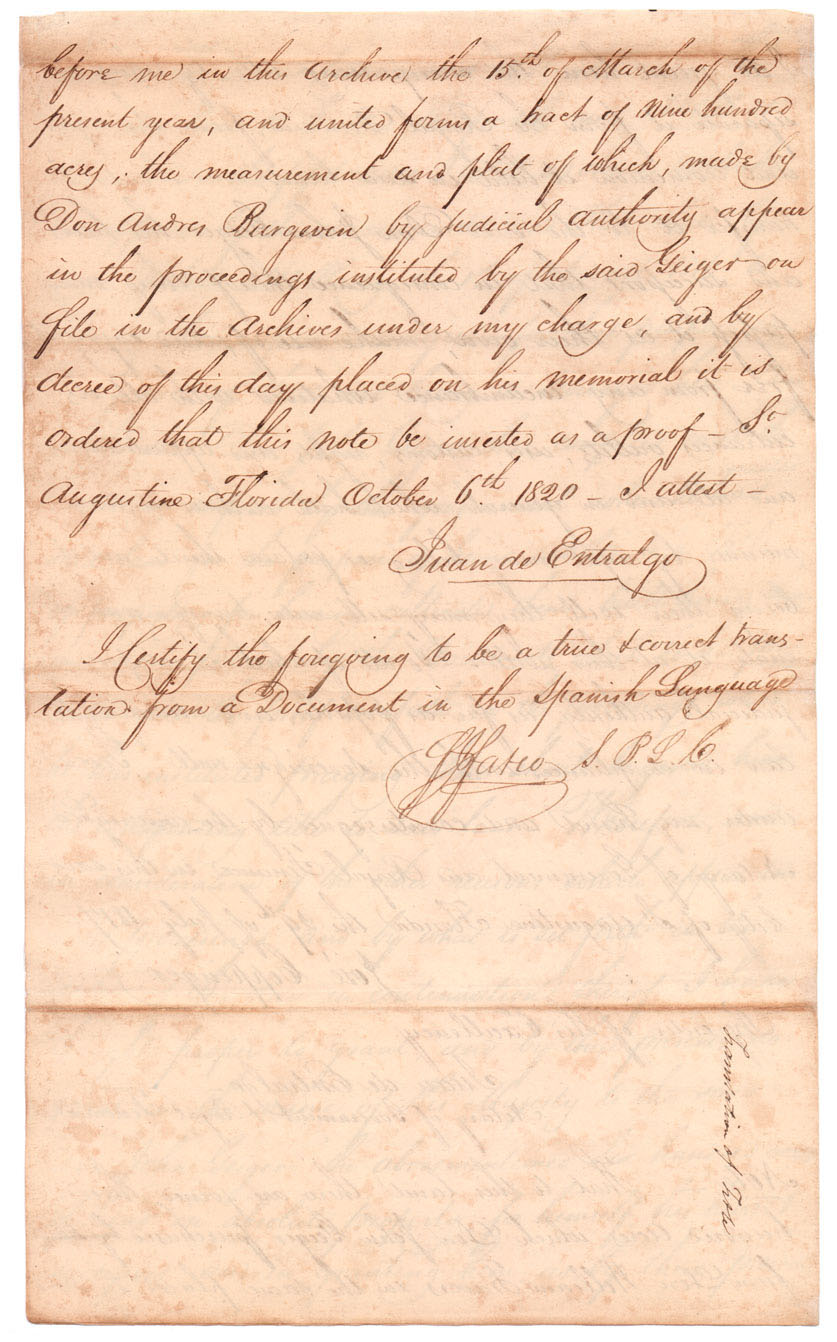 before me in this Archive the 15th. of March of the
present year, and united forms a tract of Nine hundred
acres, the measurement and plat of which, made by
Don Andres Burgevin by Judicial authority appear
in the proceedings instituted by the said Geiger on
file in the Archives under my charge, and by
decree of this day placed on his memorial it is
ordered that this note be inserted as a proof – St
Augustine Florida October 6th. 1820 – I attest –
Juan de Entralgo
I Certify the foregoing to be a true & correct trans-
lation from a Document in the Spanish Language
S. B. L. C.
Translation of